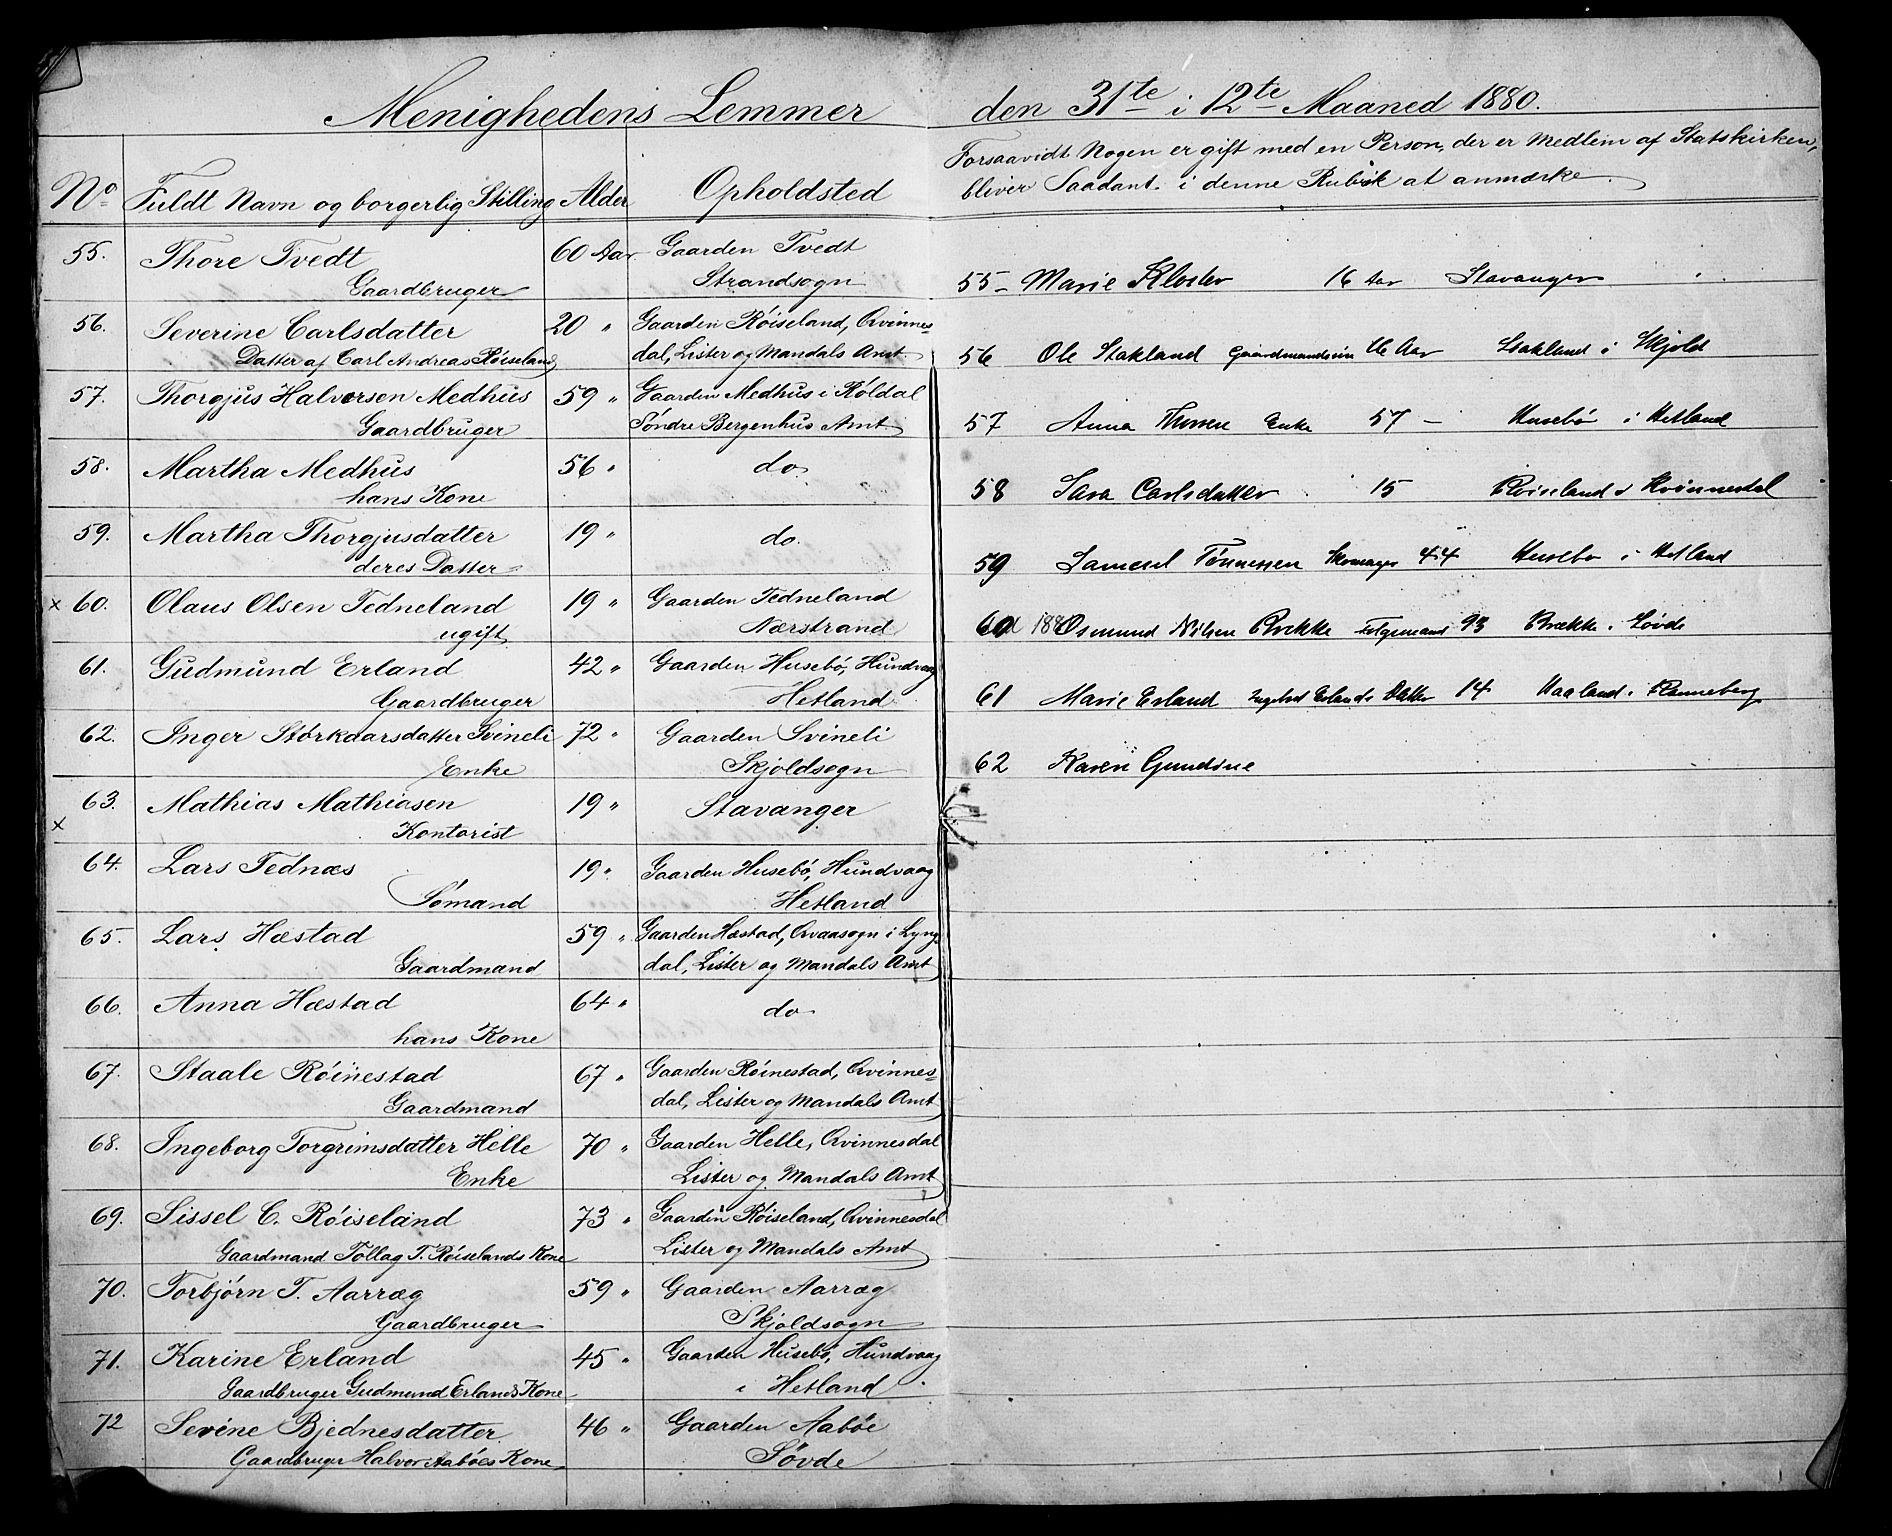 Menighedens Lemmer den 31te i 12te Maaned 1880.
No Fuldt Navn og borgerlig Stilling Alder Opholdsted
Forsaavidt Nogen er gift med en Person, der er Medlem af Statskirken,
bliver Saadant i denne Rubrik at anmærke.
55. Thore Tvedt 60 Aar Gaarden Tvedt
Gaardbruger Strandsogn
56. Severine Carlsdatter 20 " Gaarden Röiseland, Qvinnes=
Datter af Carl Andreas Röiseland dal, Lister og Mandals Amt
57. Thorgjus Halvorsen Medhus 59 " Gaarden Medhus i Röldal
Gaardbruger Söndre Bergenhus Amt
58. Martha Medhus 56 " do
hans Kone
59. Martha Thorgjusdatter 19 " do.
deres Datter
x 60. Olaus Olsen Tedneland 19 " Gaarden Tedneland
ugift Nærstrand
61. Gudmund Erland 42 " Gaarden Husebö, Hundvaag
Gaardbruger Hetland
62. Inger Störkaarsdatter Svineli 72 " Gaarden Svineli
Enke Skjoldsogn
63. Mathias Mathiasen 19 " Stavanger
x Kontorist
64. Lars Tednæs 19 " Gaarden Husebö, Hundvaag
Sömand Hetland
65. Lars Hæstad 59 " Gaarden Hæstad, Qvaasogn i Lyng
Gaardmand dal, Lister og Mandals Amt
66. Anna Hæstad 64 " do
hans Kone
67. Staale Röinestad 67 " Gaarden Röinestad, Qvinnes=
Gaardmand dal, Lister og Mandals Amt
68. Ingeborg Torgrimsdatter Helle 70 " Gaarden Helle, Qvinnesdal
Enke Lister og Mandals Amt
69. Sissel C. Röiseland 73 " Gaarden Röiseland, Qvinnesdal
Gaardmand Tollag T. Röiselands Kone Lister og Mandals Amt
70. Torbjörn T. Aarræg 59 " Gaarden Aarræg
Gaardbruger Skjoldsogn
71. Karine Erland 45 " Gaarden Husebö, Hundvaag
Gaardbruger Gudmund Erlands Kone i Hetland
72 Sevine Bjednesdatter 46 " Gaarden Aaböe
Gaardbruger Halvor Aaböes Kone Sövde
55 - Marie Kloster 16 Aar Stavanger
56 Ole Stakland 16 Aar Stakland i Skjold
57 Anna Enke 57 - Husebö i Hetland
58 Sara Carlsdatter 15 Röiseland i Kvinnesdal
59 Samuel Tönnessen Skomager 44 Husebö i Hetland
60 188 Osmund Nilsen Brekke 93 Brække i Sövde
61 Marie Erland Erlands Datter 14 Haaland i Renneberg
62 Karen Gundine